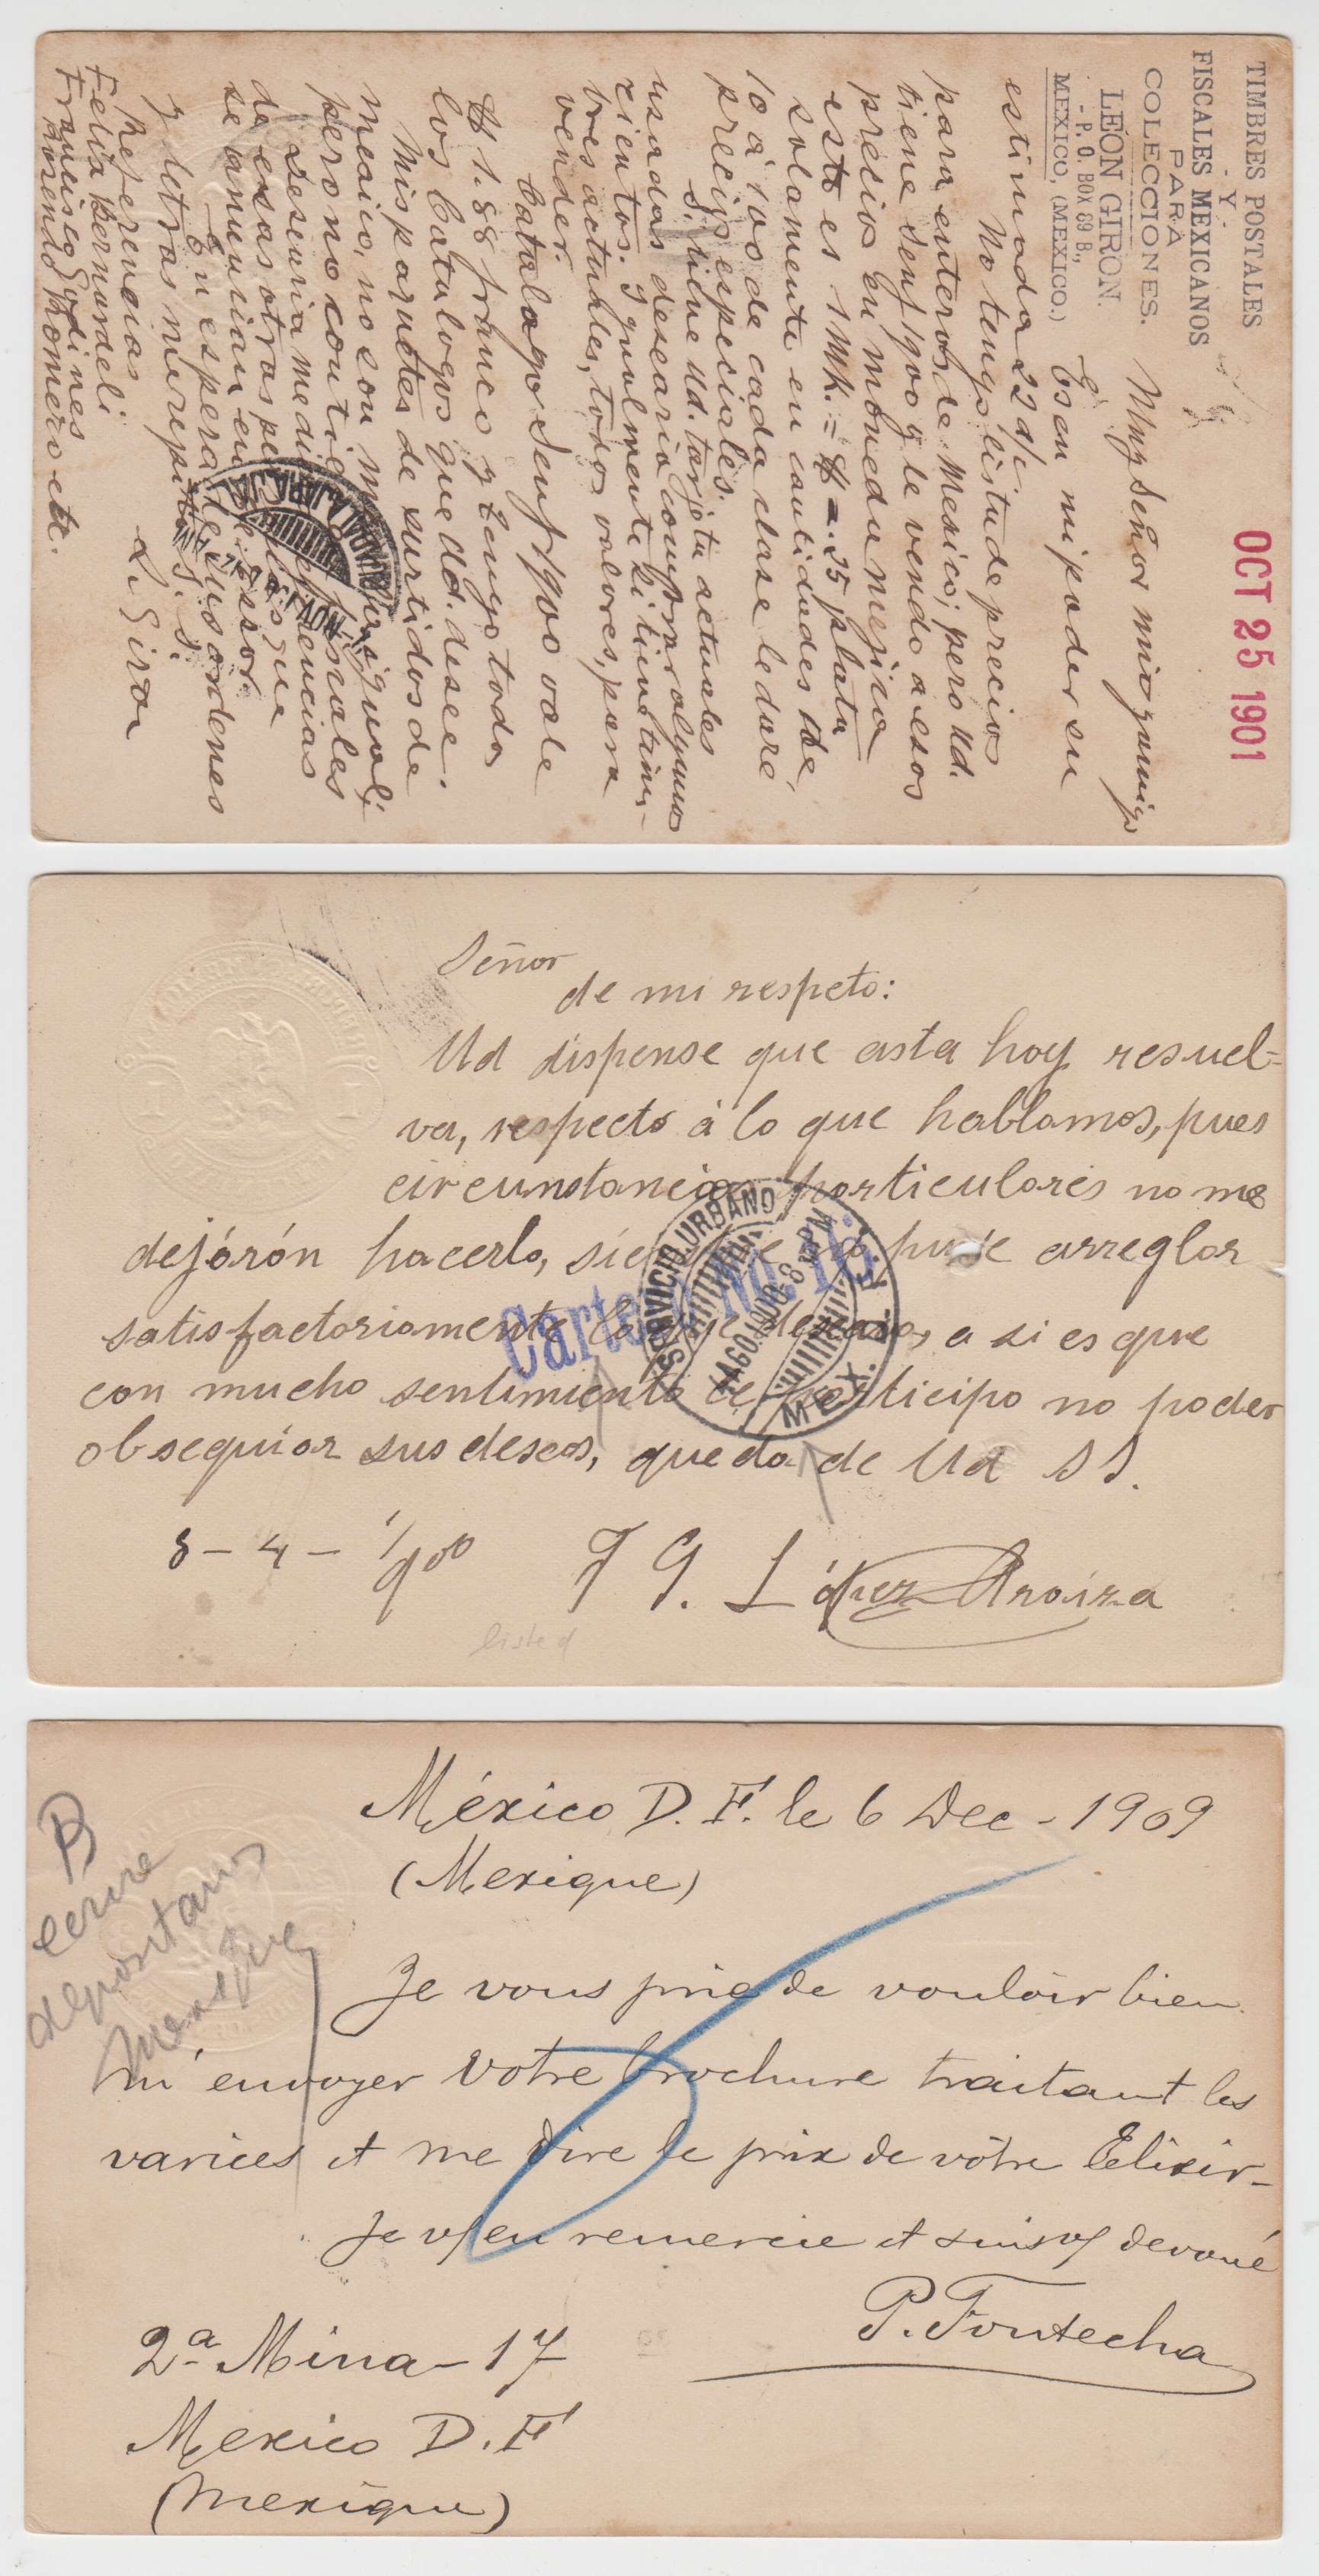 TIMBRES POSTALES
- Y -
FISCALES MEXICANOS
PARA
COLECCIONES.
LEÓN GIRON.
- P. O. BOX 89 B., -
MEXICO, (MEXICO.)
OCT 25 1901
Muy Señor mio y amigo
Es en mi poder su
estimada 22 d/c
No tengo lista de precios
para enteros de Mexico; pero Ud.
tiene Senf 1900 y le vendo a esos
precios en moneda mejica
esto es 1 MK. = $ -.25 plata
solamente en cantidades de
10 á 100 de cada clase le daré
precios especiales.
Si tiene Ud. tarjeta actuales
usadas desearia comprar algunos
cientos. ygualmente si tiene tim-
bres actuales, todos valores, para
vender.
Catalogo Senf 1900 vale
$ 1.88 franco y tengo todos
los Catalogos que Ud. desee.
Mis paquetes de surtidos de
Mexico, no son
pero no contie fiscales
Desearia me di referencias
de esas otras pe que
se anuncian en
En espera de sus ordenes
y letras me repito S. S.
L. Giron
Referencias
Felix Bernardeli
Francisco Godines
Rosendo Romero etc.
Señor
de mi respeto:
Ud dispense que asta hoy resuel-
va, respecto á lo que hablamos, pues
circunstancias particulares no me
dejórón hacerlo, siendo que no pude arreglar
satisfactoriamente lo que deseaba, a si es que
con mucho sentimiento le participo no poder
obsequiar sus deseos, queda de Ud S S.
Cartero No 16
SERVICIO URBANO
4 AGO. 1900 - 8
MEX. D. F.
8 - 4 - 1900 J G. López Aroiza
listed
México D. F. le 6 Dec - 1909
(Mexique)
B
ecrire
depontans
Mexique
Je vous prie de vouloir bien
m'envoyer votre brochure traitant les
varices et me dire le prix de vôtre Elixir -
Je vs en remercie et suis vs devoué
P. Fontecha
2a Mina - 17
Mexico D. F
(Mexique)